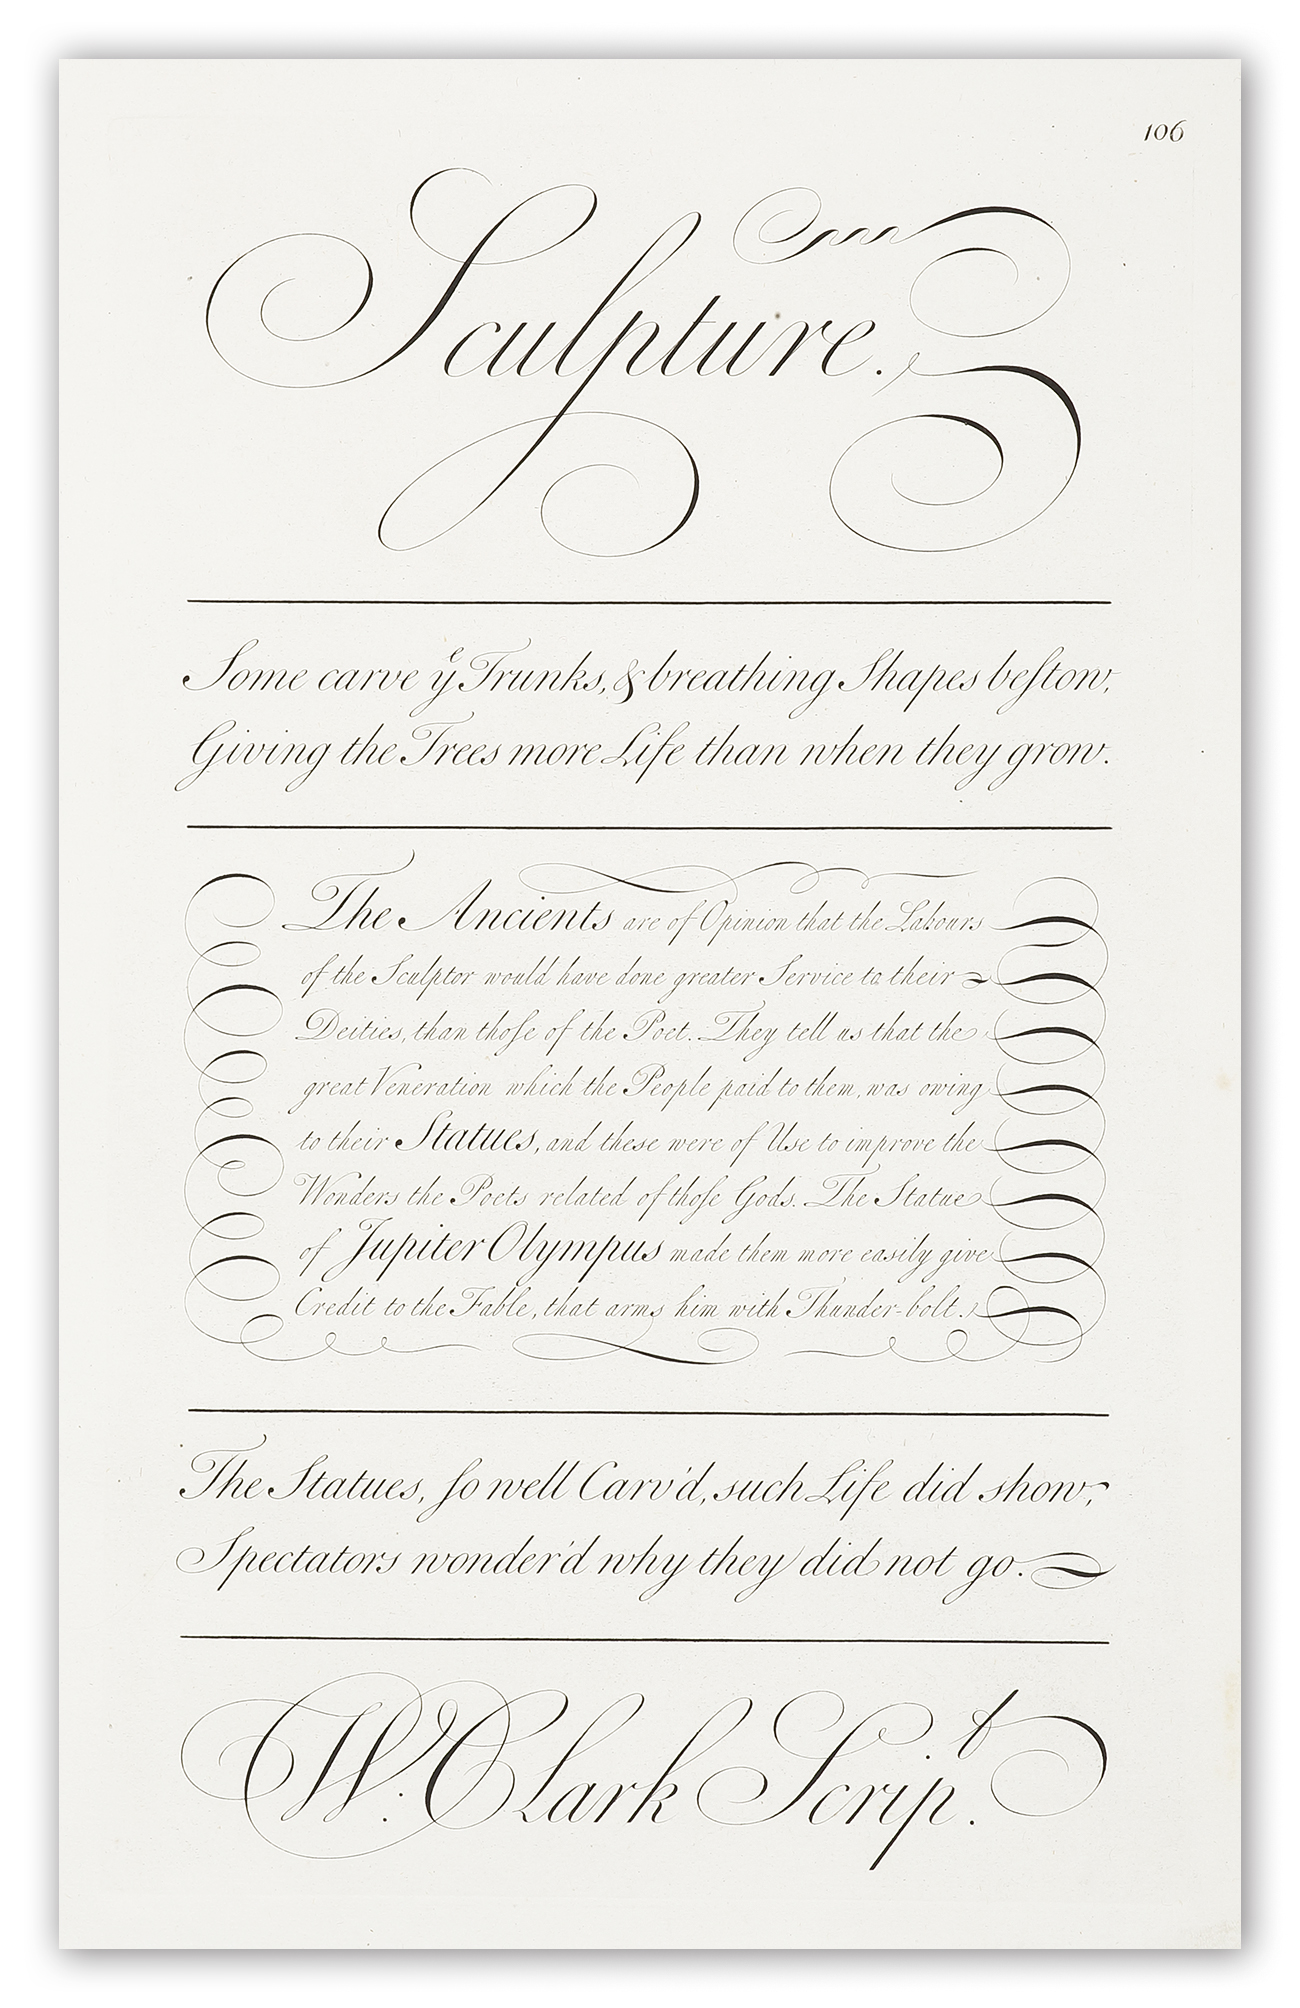 106
Sculpture.
Some carve yͤ Trunks, & breathing Shapes beſtow,
Giving the Trees more Life than when they grow.
The Ancients are of Opinion that the Labours
of the Sculptor would have done greater Service to their
Deities, than thoſe of the Poet. They tell us that the
great Veneration which the People paid to them, was owing
to their Statues, and these were of Use to improve the
Wonders the Poets related of thoſe Gods. The Statue
of Jupiter Olympus made them more easily give
Credit to the Fable, that arms him with Thunder-bolt.
The Statues, ſo well Carv'd, such Life did show,
Spectators wonder'd why they did not go.
W. Clark Scrip.ᵗ